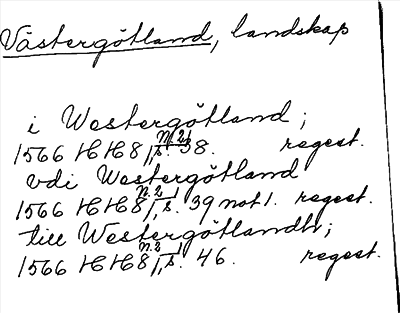 Västergötland, landskap
i Westergötland;
1566 HH 8 N. 2/1, s. 38. regest.
vdi Westergötland
1566 HH 8 N. 2/1, s. 39 not 1. regest.
till Westergötlandh;
1566 HH 8 N. 2/1, s. 46. regest.